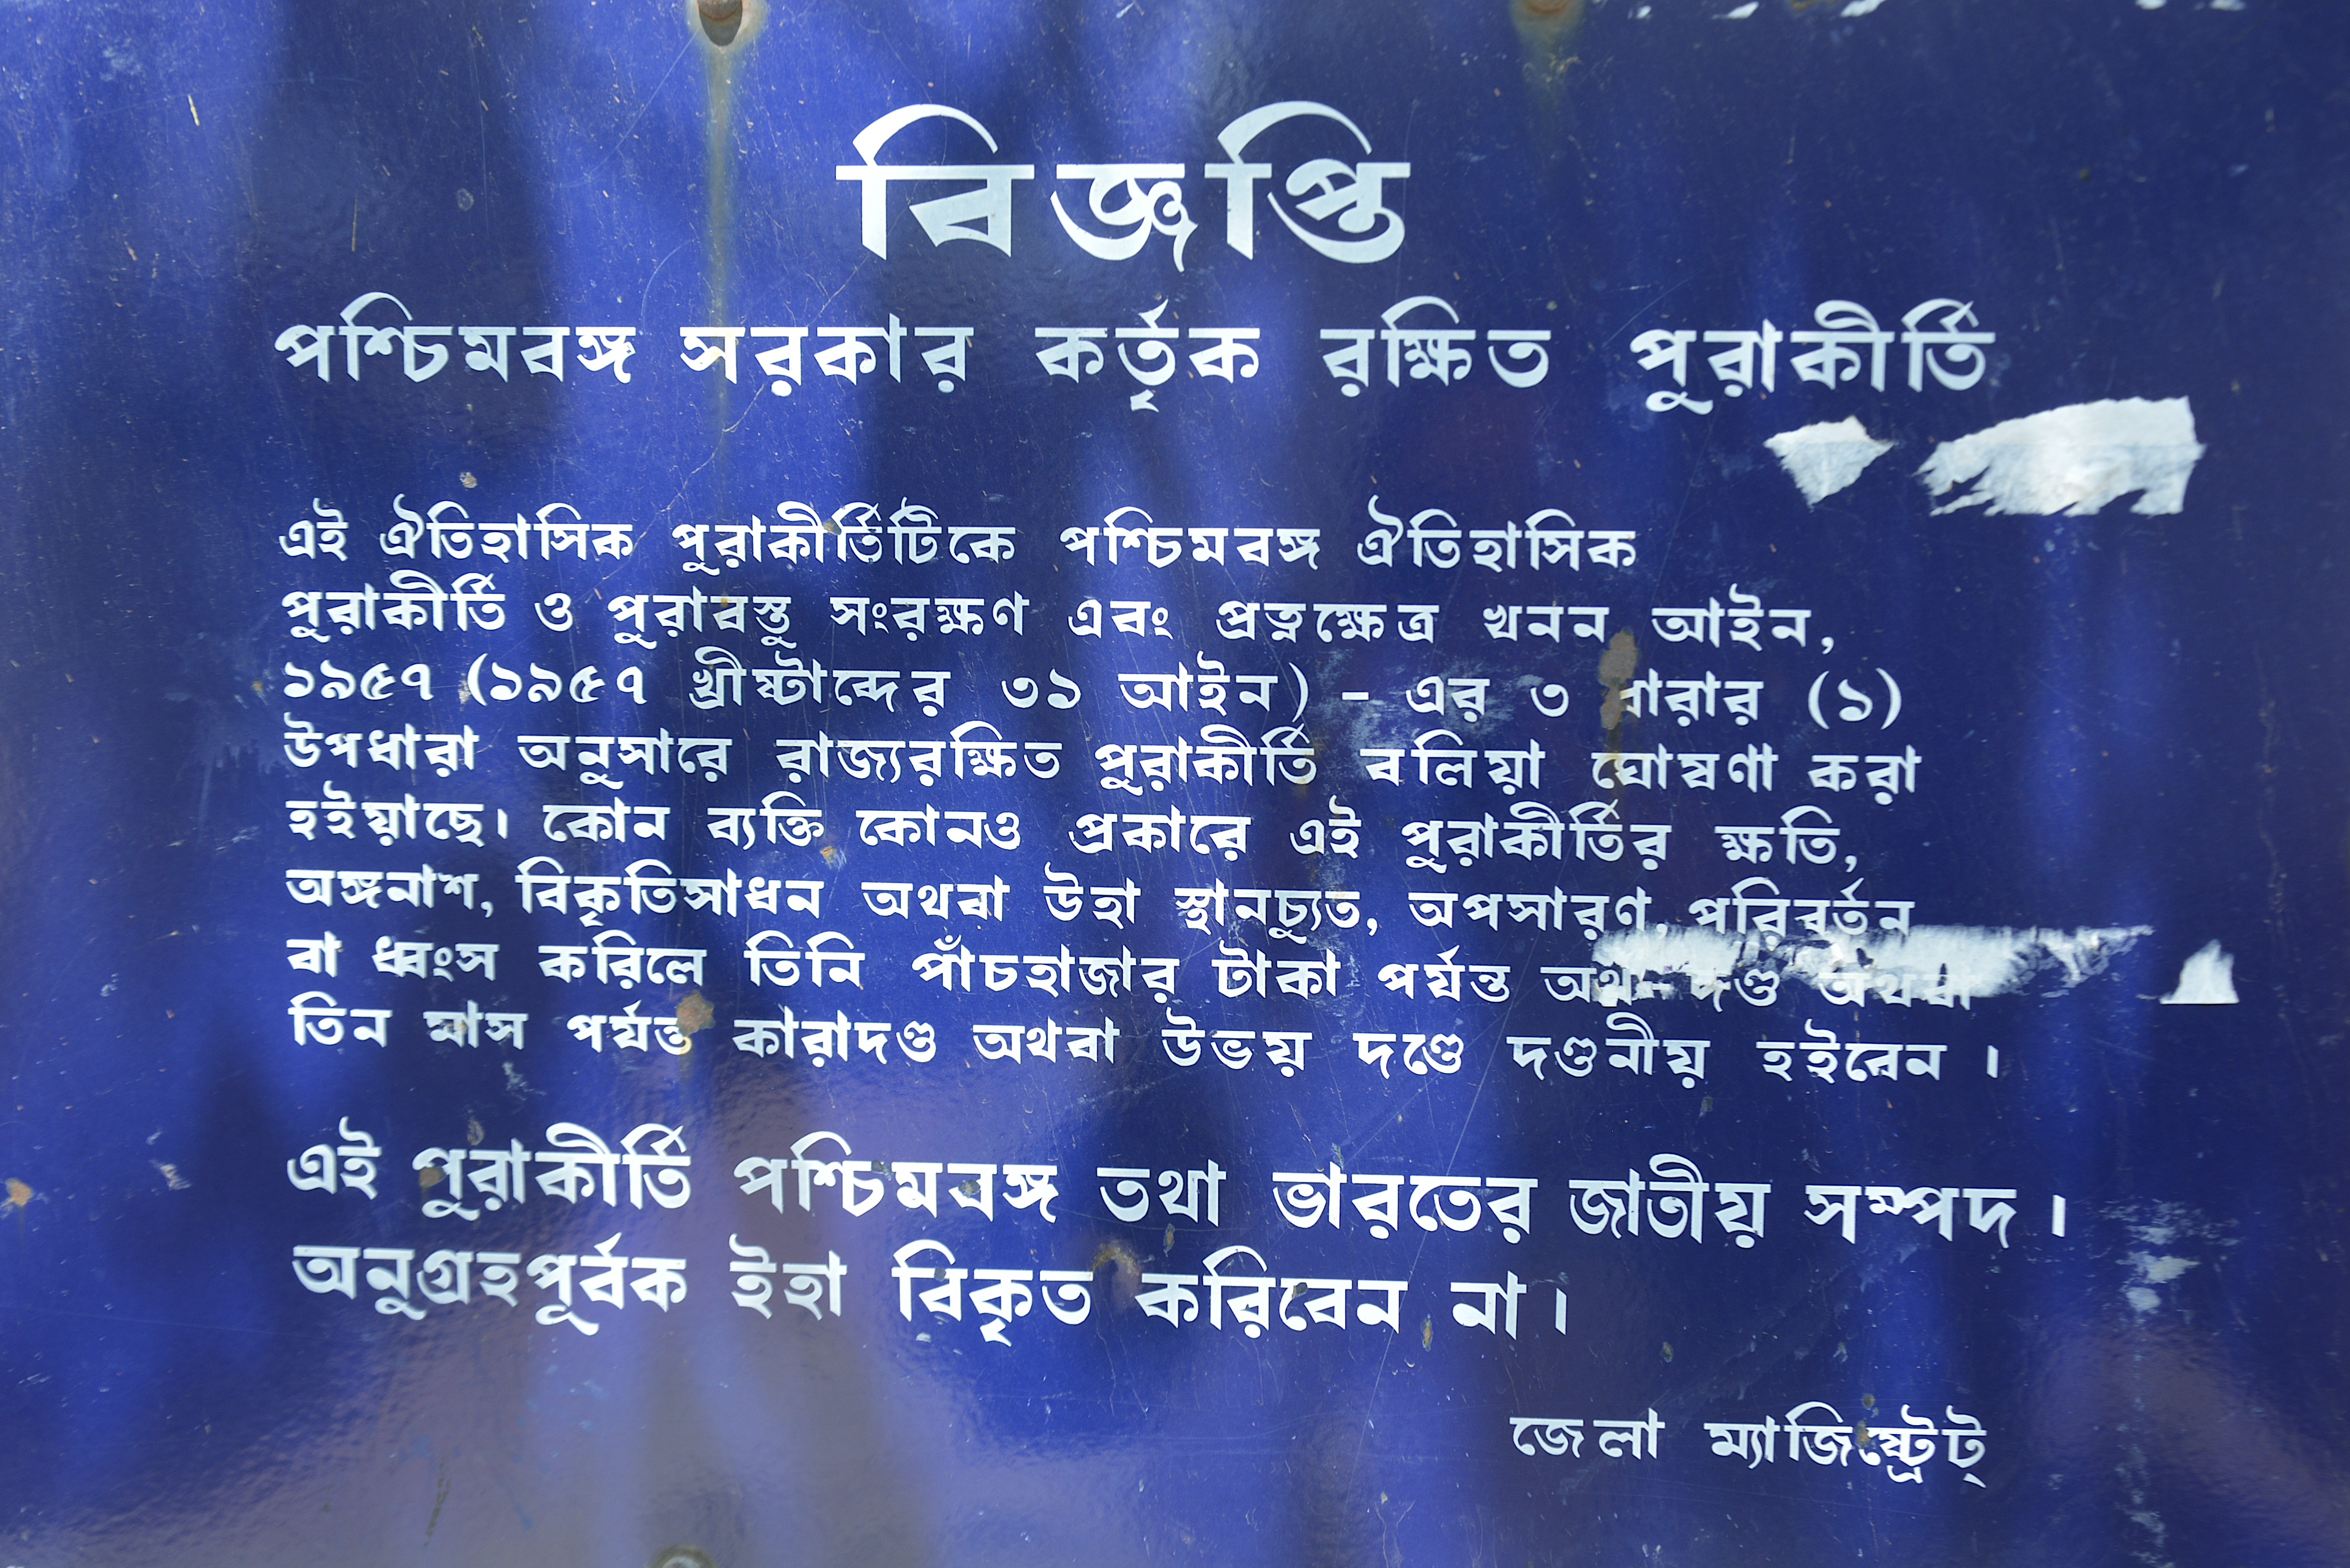 বিজ্ঞপ্তি
পশ্চিমবঙ্গ সরকার কর্তৃক রক্ষিত পুরাকীর্তি
এই ঐতিহাসিক পুরাকীর্তিটিকে পশ্চিমবঙ্গ ঐতিহাসিক
পুরাকীর্তি ও পুরাবস্তু সংরক্ষণ এবং প্রত্নক্ষেত্র খনন আইন,
১৯৫৭ (১৯৫৭ খ্রীষ্টাব্দের ৩১ আইন) - এর ৩ ধারার (১)
উপধারা অনুসারে রাজ্যরক্ষিত পুরাকীর্তি বলিয়া ঘোষণা করা
হইয়াছে। কোন ব্যক্তি কোনও প্রকারে এই পুরাকীর্তির ক্ষতি,
অঙ্গনাশ, বিকৃতিসাধন অথবা উহা স্থানচ্যুত, অপসারণ, পরিবর্তন
বা ধ্বংস করিলে তিনি পাঁচহাজার টাকা পর্য্যন্ত অর্থ-দণ্ড অথবা
তিন মাস পর্য্যন্ত কারাদণ্ড অথবা উভয় দণ্ডে দণ্ডনীয় হইবেন ।
এই পুরাকীর্তি পশ্চিমবঙ্গ তথা ভারতের জাতীয় সম্পদ ।
অনুগ্রহপূর্বক ইহা বিকৃত করিবেন না ।
জেলা ম্যাজিষ্ট্রেট্